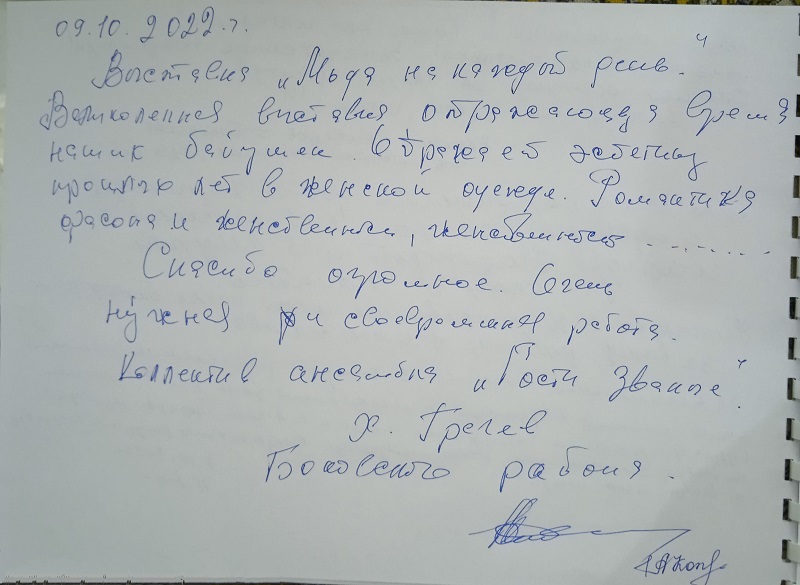 09.10.2022 г.
Выставка „Мода на каждый день."
Великолепная выставка отражающая время
наших бабушек. Отражает эстетику
прошлых лет в женской одежде. Романтика
фасона и женственности, женственность ..........
Спасибо огромное. Очень
нужная и своевременная работа.
Коллектив ансамбля „Гости Званые".
х. Грачев
Боковского района.